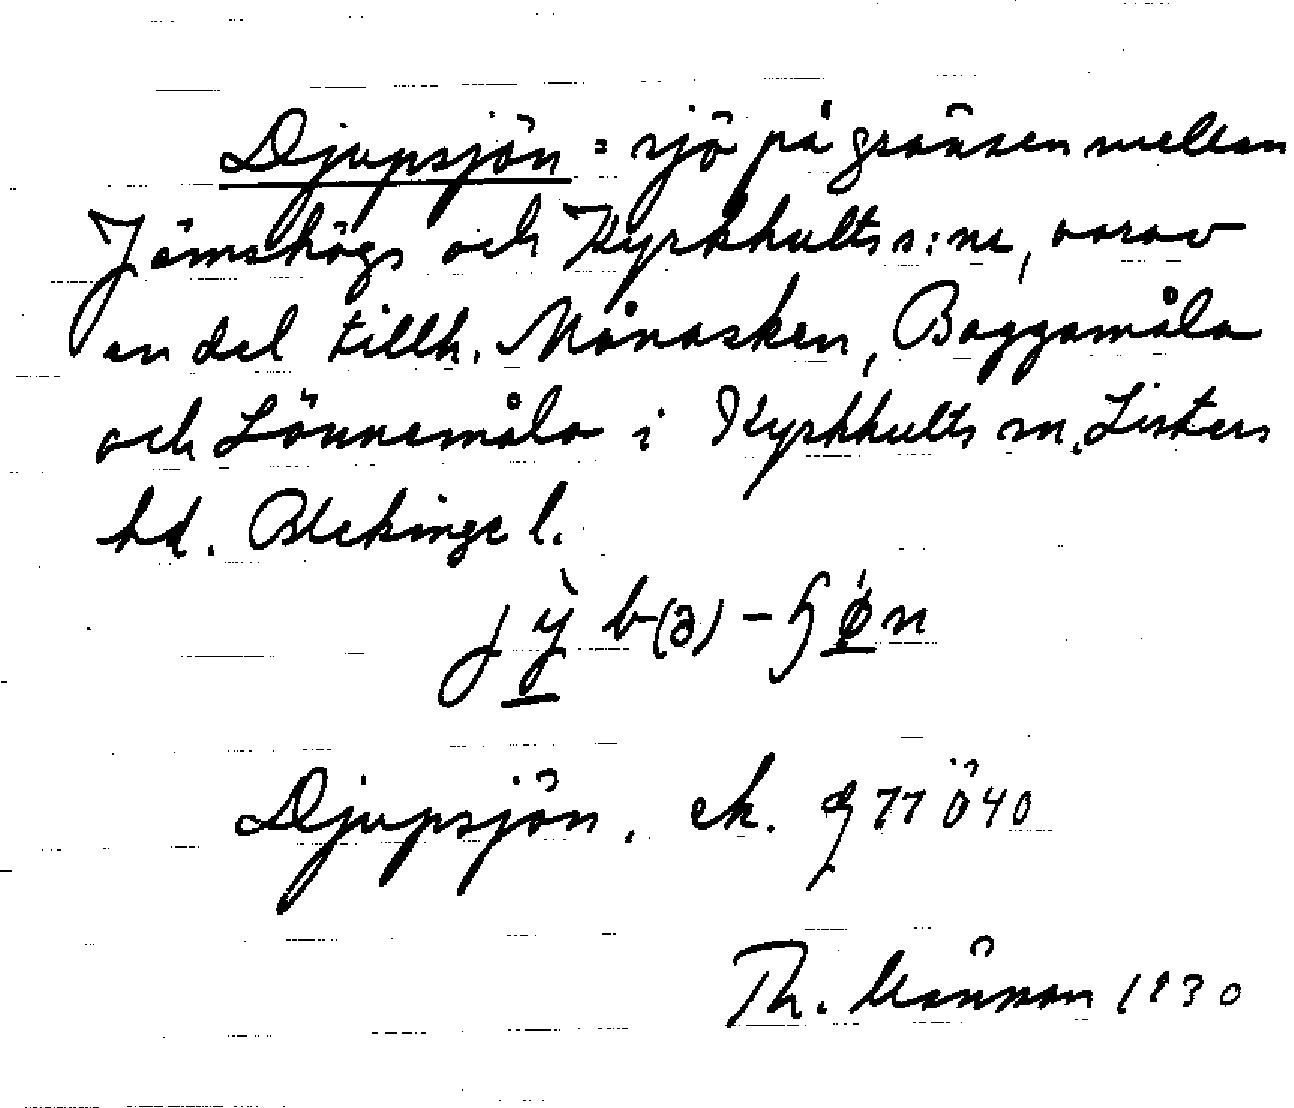 Djupsjön = sjö på gränsen mellan
Jämshögs och Kyrkhults s:nr, varav
en del tillh. Månasken, Baggamåla
och Lönnemåla i Kyrkhults sn, Listers
hd. Blekinge l.
jỳb(ə)-ʃǿn
Djupsjön. ek. 77 Ö40
Th. 1930